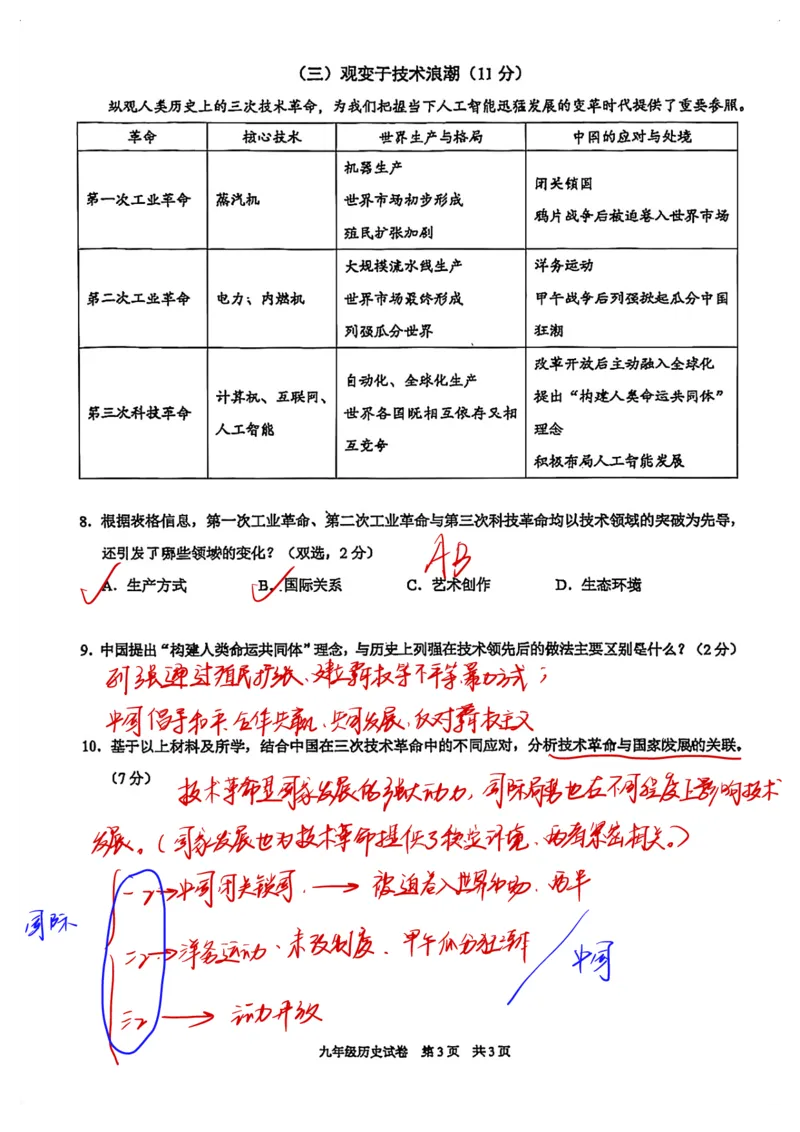 （三）观变于技术浪潮（11 分）
纵观人类历史上的三次技术革命，为我们把握当下人工智能迅猛发展的变革时代提供了重要参照。
革命 核心技术 世界生产与格局 中国的应对与处境
第一次工业革命 蒸汽机 机器生产 世界市场初步形成 殖民扩张加剧 闭关锁国 鸦片战争后被迫卷入世界市场
第二次工业革命 电力；内燃机 大规模流水线生产 世界市场最终形成 列强瓜分世界 洋务运动 甲午战争后列强掀起瓜分中国狂潮
第三次科技革命 计算机、互联网、人工智能 自动化、全球化生产 世界各国既相互依存又相互竞争 改革开放后主动融入全球化 提出“构建人类命运共同体”理念 积极布局人工智能发展
8．根据表格信息，第一次工业革命、第二次工业革命与第三次科技革命均以技术领域的突破为先导，
还引发了哪些领域的变化？（双选，2 分）
AB
A．生产方式 B．国际关系 C．艺术创作 D．生态环境
9．中国提出“构建人类命运共同体”理念，与历史上列强在技术领先后的做法主要区别是什么？（2 分）
列强通过殖民扩张、建立霸权等不平等暴力方式；
中国倡导和平、合作共赢、共同发展、反对霸权主义
10．基于以上材料及所学，结合中国在三次技术革命中的不同应对，分析技术革命与国家发展的关联。
（7 分）
技术革命是国家发展的强大动力，国际局势也在不同程度上影响技术
发展。（国家发展也为技术革命提供了稳定环境、两者紧密相关。）
一 → 中国闭关锁国. → 被迫卷入世界市场. 两半
国际
二 → 洋务运动、未改制度. 甲午瓜分狂潮
中国
三 →
九年级历史试卷 第 3 页 共 3 页